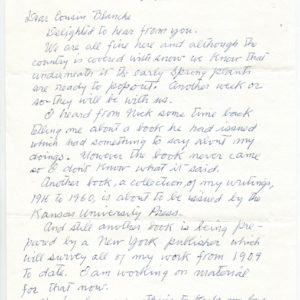 Dear Cousin Blanche
Delighted to hear from you.
We are all fine here and although the
country is covered with snow we know that
underneath it the early spring plants
are ready to pop out. Another week or
so they will be with us.
I heard from Nick some time back
telling me about a book he had issued
which had something to say about my
doings. However the book never came
so I don't know what it said.
Another book, a collection of my writings,
1916 to 1960, is about to be issued by the
Kansas University Press.
And still another book is being pre-
pared by a New York publisher which
will survey all of my work from 1909
to date. I am working on material
for that now.